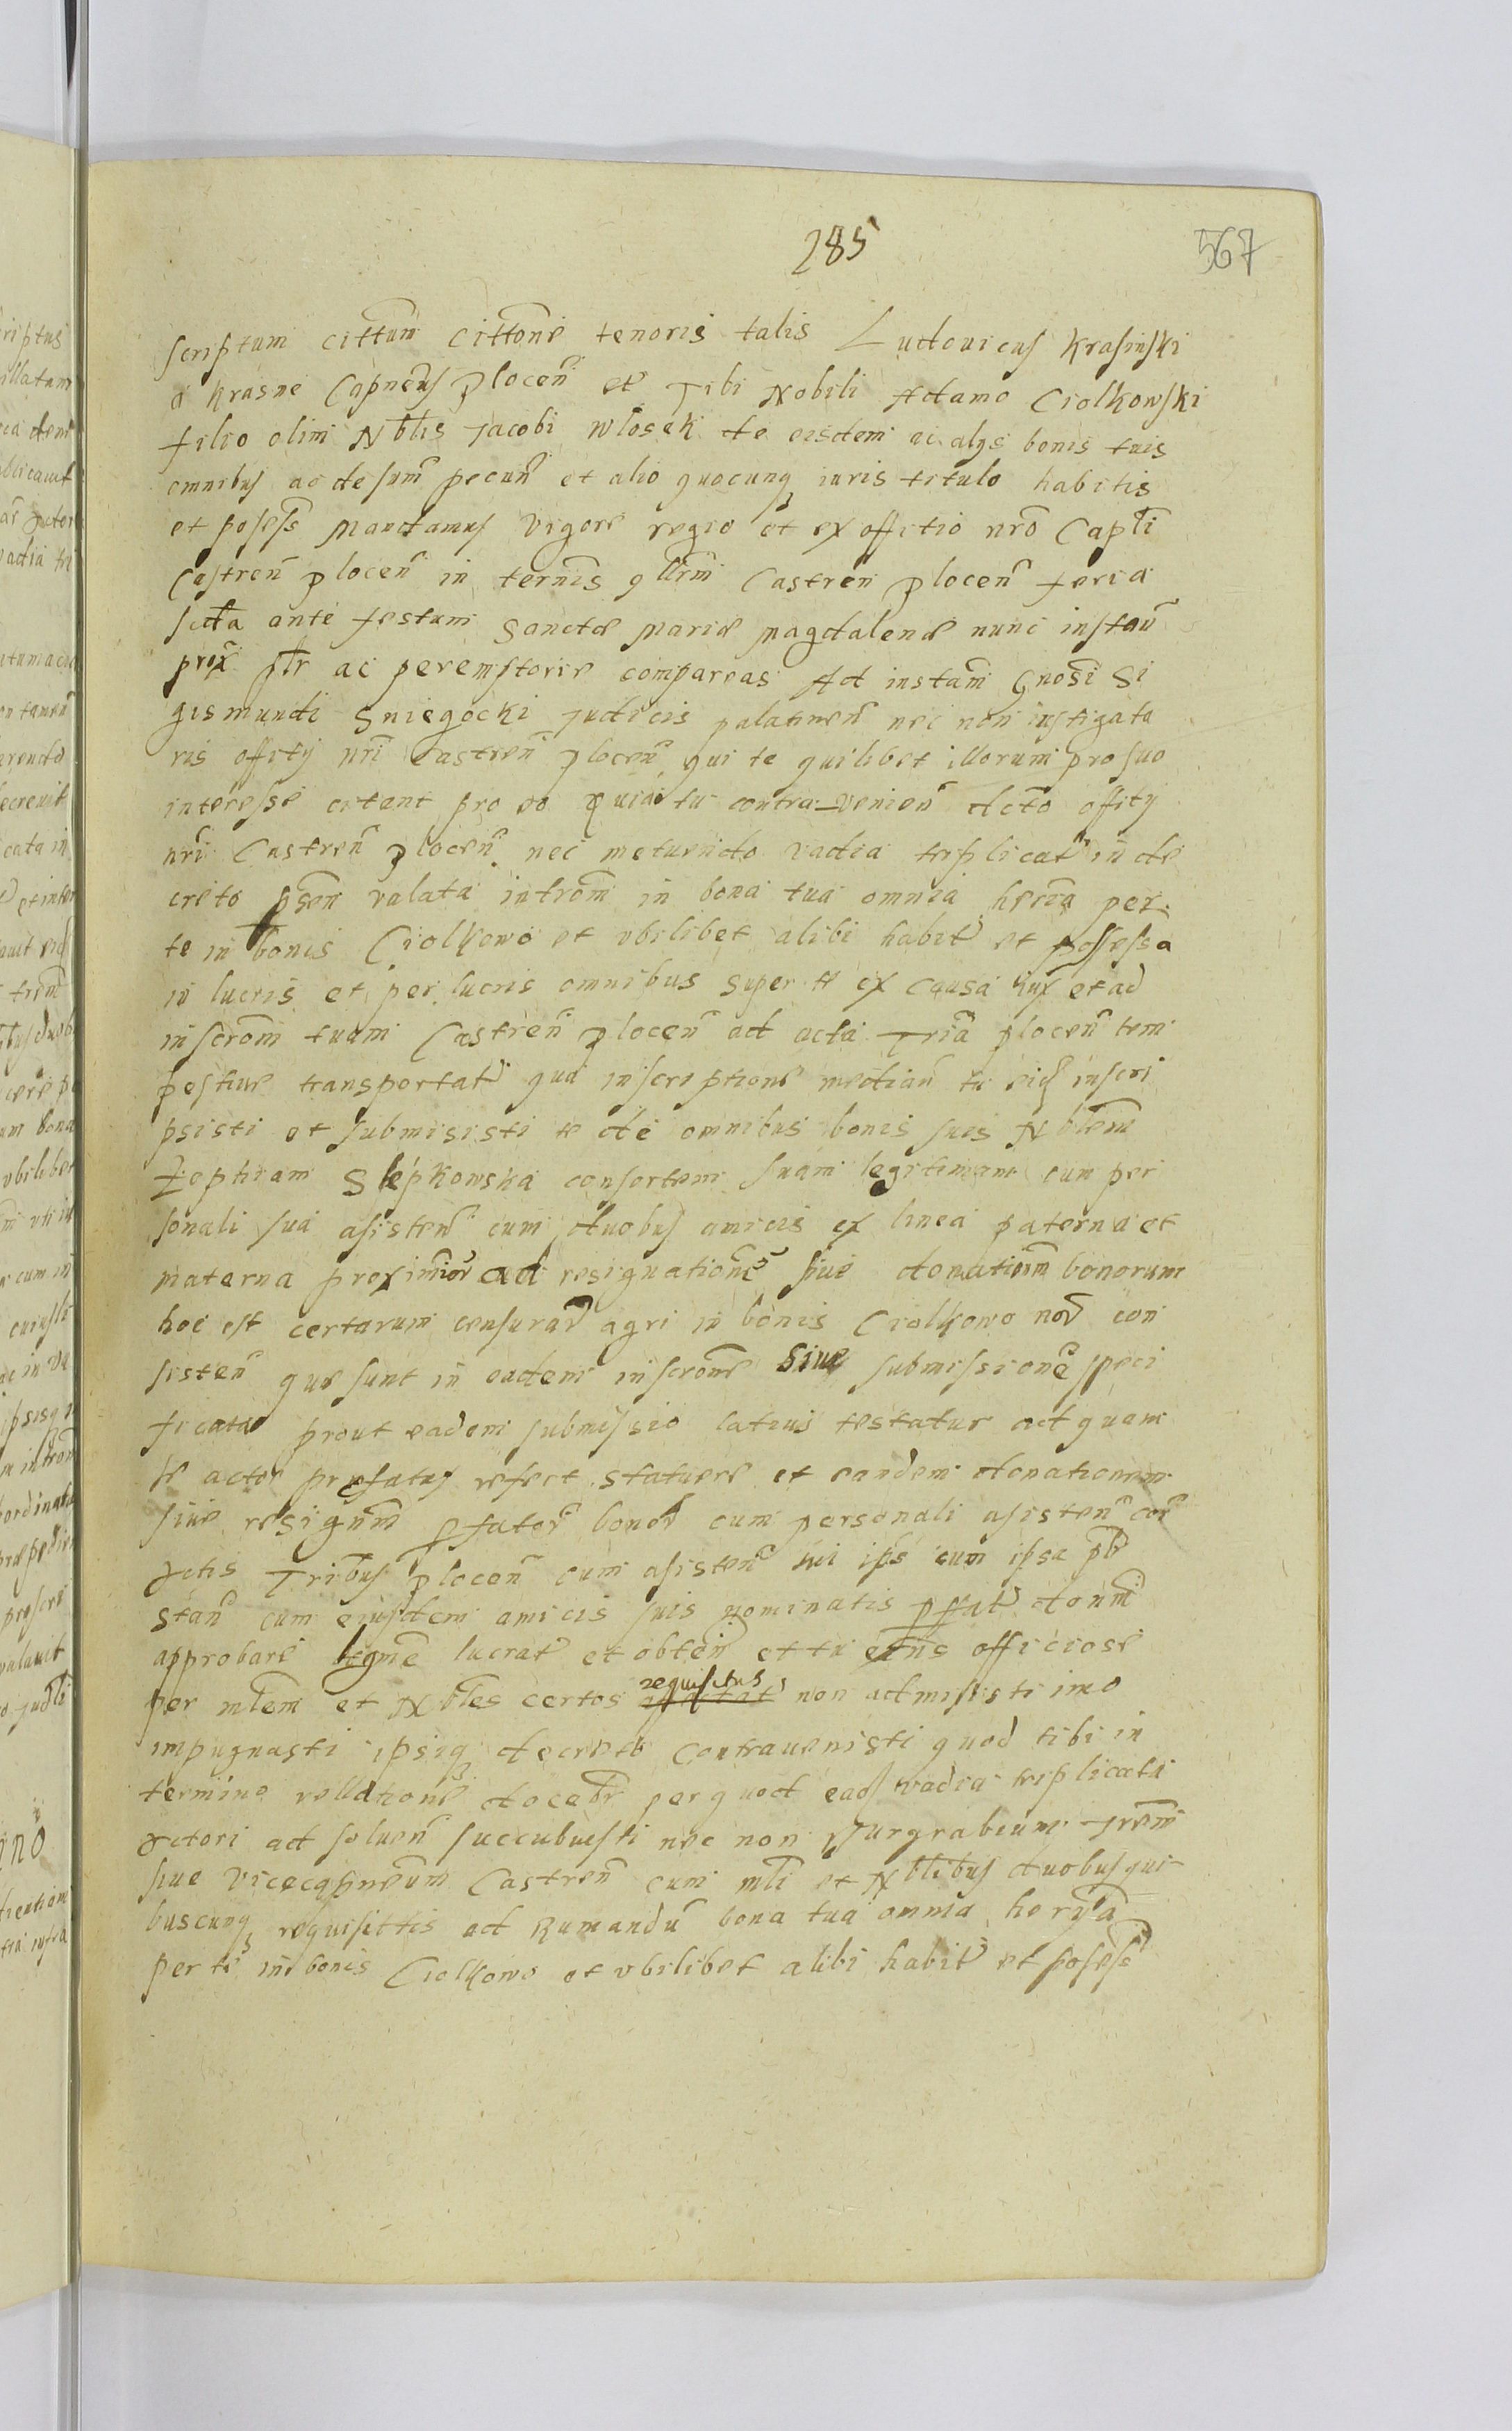 285
567
scriptum cittum cittone tenoris talis Ludouicus Krasinski
a Krasne Capneus Plocen et Tibi Nobili Adamo Ciolkowski
filio olim Nblis Jacobi Wlosek de eisdem ac alijs bonis tuis
omnibus ac de sum pecun et alio quocunq iuris titulo habitis
et posess Mandamus vigore regio et ex offitio nro Capli
Castren Plocen in ternis qllrm Castren Plocen feria
scta ante festum Sanctæ Mariæ Magdalenæ nunc instan
prox ptr ac peremptorie compareas Ad instam Gnosi Si
gismundi Sniegocki Judicis palatinen nec non instigato
ris offity nri Castren Plocen qui te quilibet illorum pro suo
interesse citant pro eo quia tu contra venien dcto offity
nri Castren Plocen nec metuendo vadia triplicat in de
creto psen valata introm in bona tua omnia hæria per
te in bonis Ciolkowo et vbilibet alibi habit et possessa
in lucris et per lucris omnibus super te ex causa et ad
inscrom tuam Castren Plocen ad acta Tria Plocen tem
pestiue transportat qua inscriptione median tu eid inscri
psisti et submisisti te de omnibus bonis suis Nblem
Zophiam Slepkowska consortem suam legitimam cum per
sonali sua asisten cum duobus amicis ex linea paterna et
materna proximior ad resignatione siue donationem bonorum
hoc est certarum censurar agri in bonis Ciolkowo nod con
sisten quæ sunt in eadem inscrone siue submissione speci
ficata prout eadem submissio latius testatur ad quam
se actor prefatus refert statuere et eandem donationem
siue resignm pfator bonor cum personali asisten cor
Actis Tribus Plocen cum asisten sui ips cum ipsa
stan cum eiusdem amicis suis nominatis pfat donm
approbare legme lucrat et obten et tu officiose
per mlem et Nbles certos requisitus non admisisti imo
impugnasti ipsiq decreto contrauenisti quod tibi in
termino rellatione docebr per quod ead vadia triplicata
Actori ad soluen succubuisti nec non Burgrabium Trem
siue vicecapneum Castren cum mli et Nblibus duobus qui
buscunq requisitis ad Rumandu bona tua omnia herria
per te in bonis Ciolkowo et vbilibet alibi habit et posess